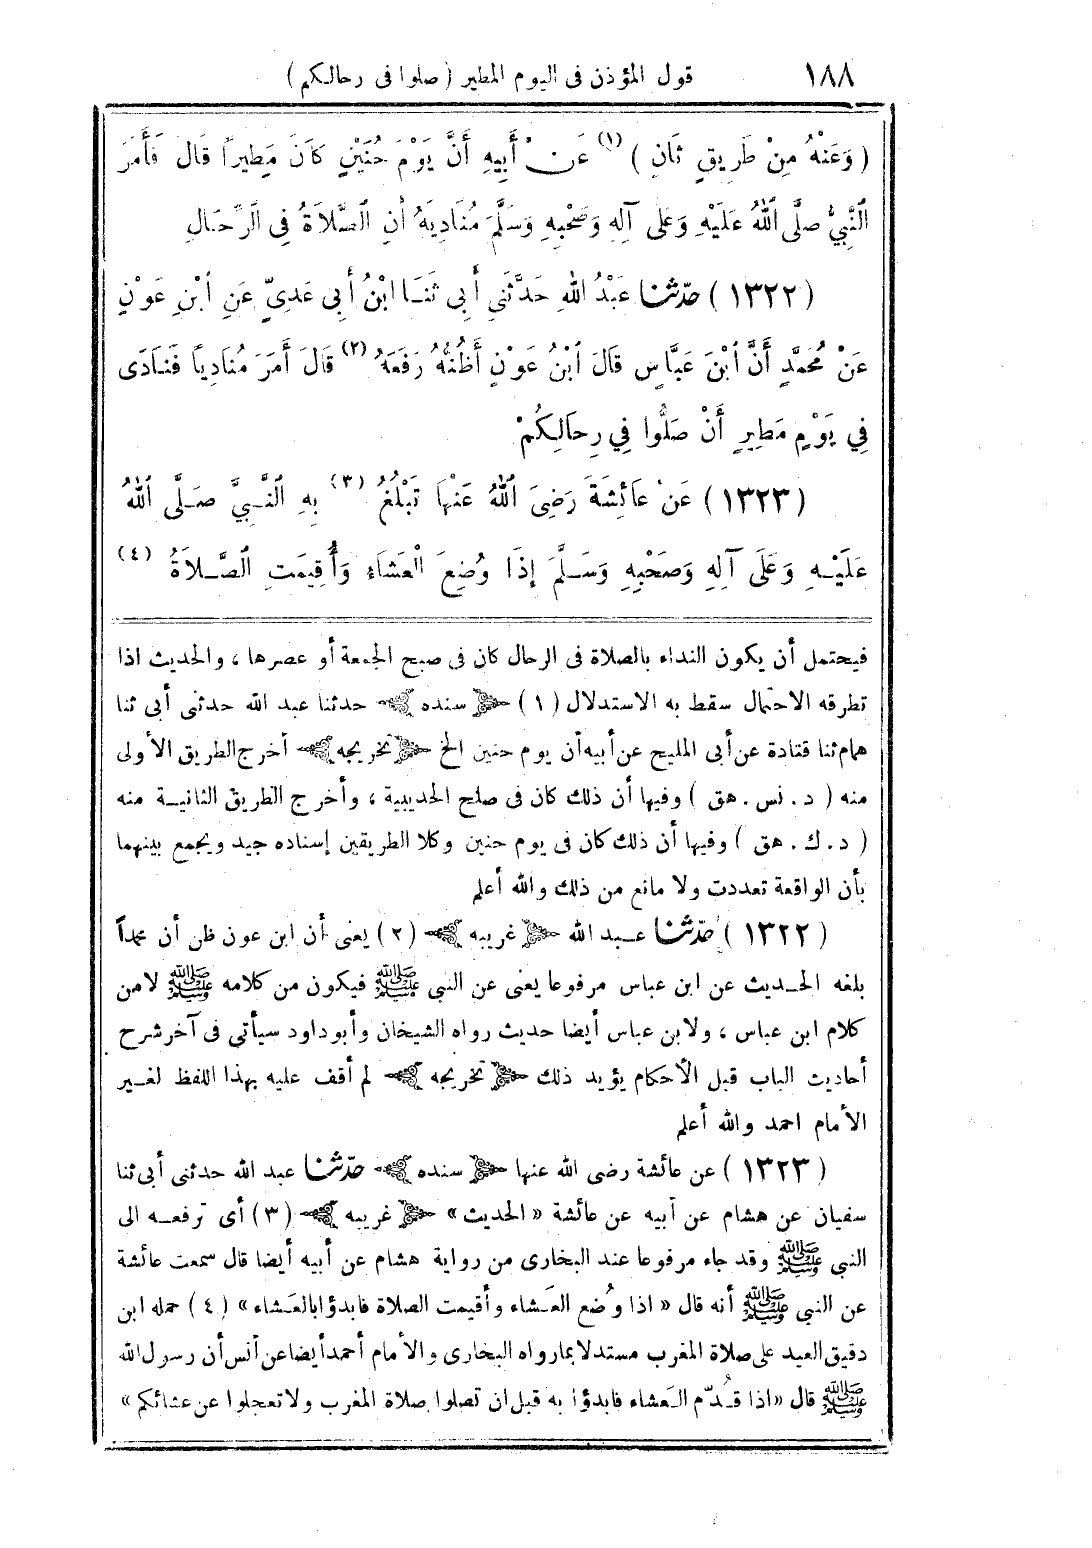 ١٨٨ قول المؤذن فى اليوم المطير (صلوا فى رحالكم)
( وَعَنْهُ مِنْ طَرِيقٍ ثَانٍ ) (١) عَنْ أَبِيهِ أَنَّ يَوْمَ حُنَيْنٍ كَانَ مَطِيراً قَالَ فَأَمَرَ
النَّبِيُّ صلَّى اللهُ عَلَيْهِ وَعَلَى آلِهِ وَصَحْبِهِ وَسَلَّمَ مُنَادِيَهُ أَنِ الصَّلاَةُ فِى الرِّحَالِ
(١٣٢٢) حدّثنا عَبْدُ اللهِ حَدَّثَنِى أَبِى ثَنَا ابْنُ أَبِى عَدِىٍّ عَنِ ابْنِ عَوْنٍ
عَنْ مُحَمَّدٍ أَنَّ ابْنَ عَبَّاسٍ قَالَ ابْنُ عَوْنٍ أَظُنُّهُ رَفَعَهُ (٢) قَالَ أَمَرَ مُنَادِياً فَنَادَى
فِي يَوْمٍ مَطِيرٍ أَنْ صَلُّوا فِي رِحَالِكُمْ
(١٣٢٣) عَنْ عَائِشَةَ رَضِىَ اللهُ عَنْهَا تَبْلُغُ (٣) بِهِ النَّبِيَّ صَلَّى اللهُ
عَلَيْهِ وَعَلَى آلِهِ وَصَحْبِهِ وَسَلَّمَ إِذَا وُضِعَ الْعَشَاءِ وَأُقِيمَتِ الصَّلاَةُ (٤)
فيحتمل أن يكون النداء بالصلاة فى الرحال كان فى صبح الجمعة أو عصرها ، والحديث اذا
تطرقه الاحتمال سقط به الاستدلال (١) ﴿ سنده ﴾ حدثنا عبد الله حدثنى أبى ثنا
همام ثنا قتادة عن أبى المليح عن أبيه أن يوم حنين الخ ﴿ تخريجه ﴾ أخرج الطريق الأولى
منه ( د . نس . هق ) وفيها أن ذلك كان فى صلح الحديبية ، وأخرج الطريق الثانية منه
( د . ك . هق ) وفيها أن ذلك كان فى يوم حنين وكلا الطريقين إسناده جيد ويجمع بينهما
بأن الواقعة تعددت ولا مانع من ذلك والله أعلم
(١٣٢٢) حدّثنا عبد الله ﴿ غريبه ﴾ (٢) يعنى أن ابن عون ظن أن محمداً
بلغه الحديث عن ابن عباس مرفوعا يعنى عن النبى ﷺ فيكون من كلامه ﷺ لامن
كلام ابن عباس ، ولابن عباس أيضا حديث رواه الشيخان وأبو داود سيأتى فى آخر شرح
أحاديث الباب قبل الأحكام يؤيد ذلك ﴿ تخريجه ﴾ لم أقف عليه بهذا اللفظ لغير
الأمام احمد والله أعلم
(١٣٢٣) عن عائشة رضى الله عنها ﴿ سنده ﴾ حدّثنا عبد الله حدثنى أبى ثنا
سفيان عن هشام عن أبيه عن عائشة « الحديث » ﴿ غريبه ﴾ (٣) أى ترفعه الى
النبى ﷺ وقد جاء مرفوعا عند البخارى من رواية هشام عن أبيه أيضا قال سمعت عائشة
عن النبى ﷺ أنه قال « اذا وُضع العَشاء وأقيمت الصلاة فابدؤا بالعَشاء » (٤) حمله ابن
دقيق العيد على صلاة المغرب مستدلا بما رواه البخارى والأمام أحمد أيضا عن أنس أن رسول الله
ﷺ قال «اذا قُدّم العَشاء فابدؤا به قبل ان تصلوا صلاة المغرب ولا تعجلوا عن عشائكم»